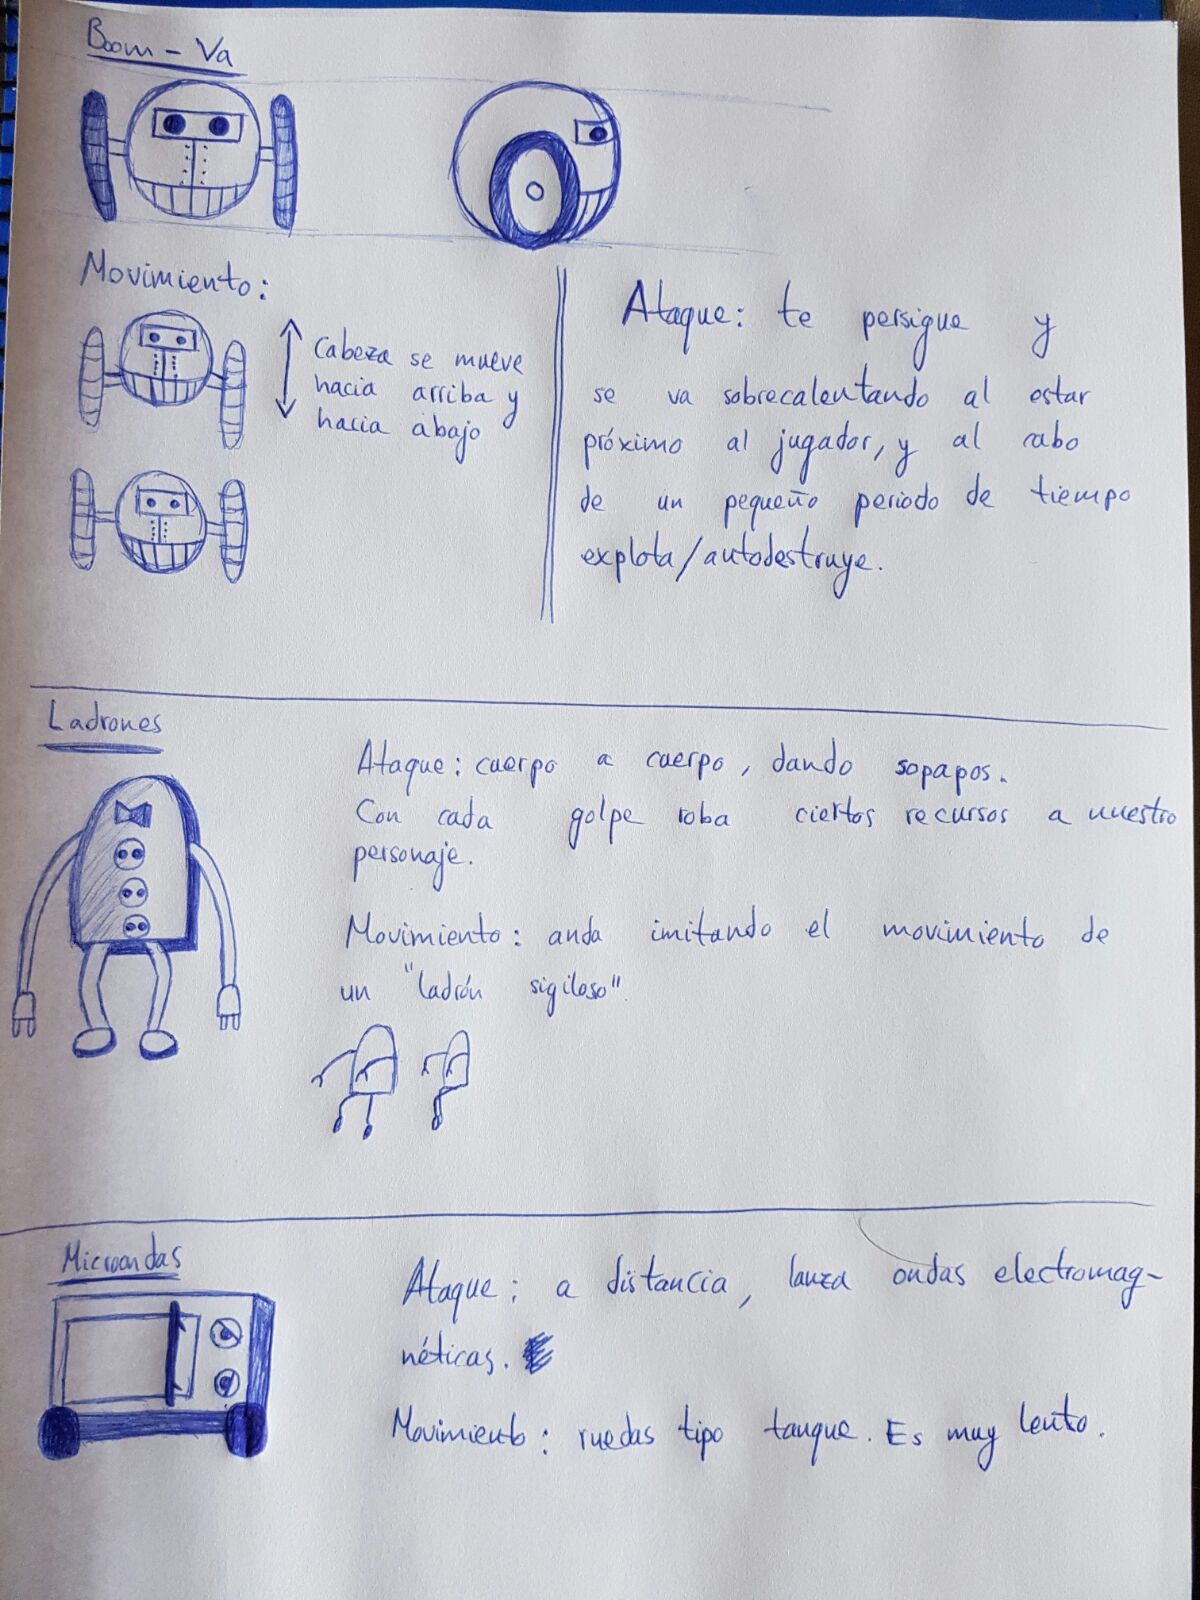 Boom - Va
Movimiento:
Cabeza se mueve
hacia arriba y
hacia abajo
Ataque: te persigue y
se va sobrecalentando al estar
próximo al jugador, y al cabo
de un pequeño periodo de tiempo
explota/autodestruye.
Ladrones
Ataque: cuerpo a cuerpo, dando sopapos.
Con cada golpe roba ciertos recursos a nuestro
personaje.
Movimiento: anda imitando el movimiento de
un "ladrón sigiloso".
Microondas
Ataque: a distancia, lanza ondas electromag-
néticas.
Movimiento: ruedas tipo tanque. Es muy lento.